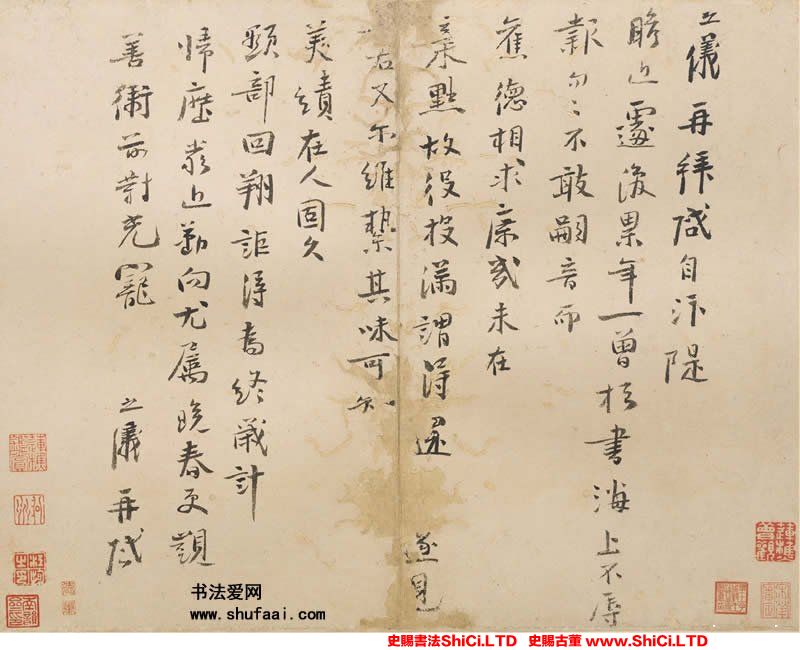 之儀再拜啟自汴隄
瞻近處後累年一曾於書海上不辱
報自是不敢嗣音而
舊德相求亦或未在
棄點故復投滿謂得還 遂見
右又不維縶其味可知
美績在人固久
顯部回翔詎得為終歲計
歸塵密邇勤向尤屬晚春更覬
善衛前對光寵
之儀再啟
书法爱网
www.shufaai.com
史賜書法ShiCi.LTD 史賜古董 www.ShiCi.LTD